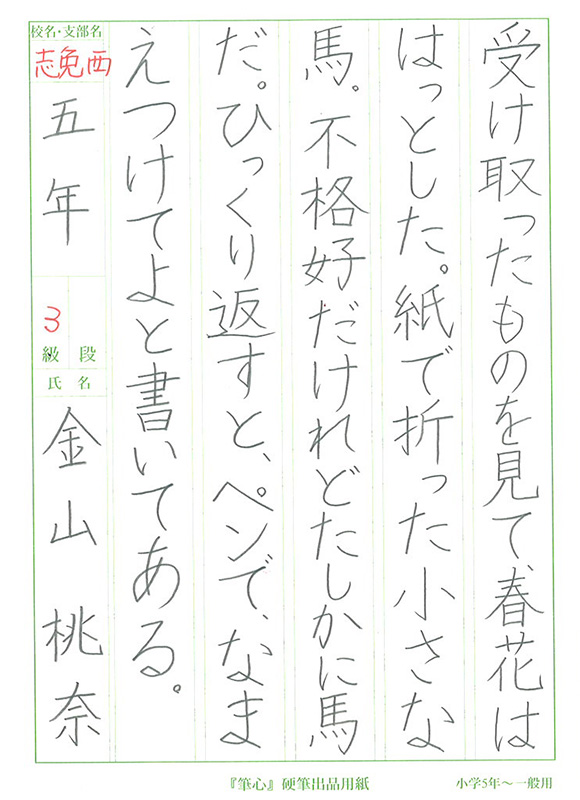 受け取ったものを見て、春花は
はっとした。紙で折った小さな
馬。不格好だけれどたしかに馬
だ。ひっくり返すと、ペンで、なま
えつけてよと書いてある。
校名・支部名
志免西
五年
3
級 段
氏名
金山桃奈
『筆心』硬筆出品用紙
小学5年～一般用